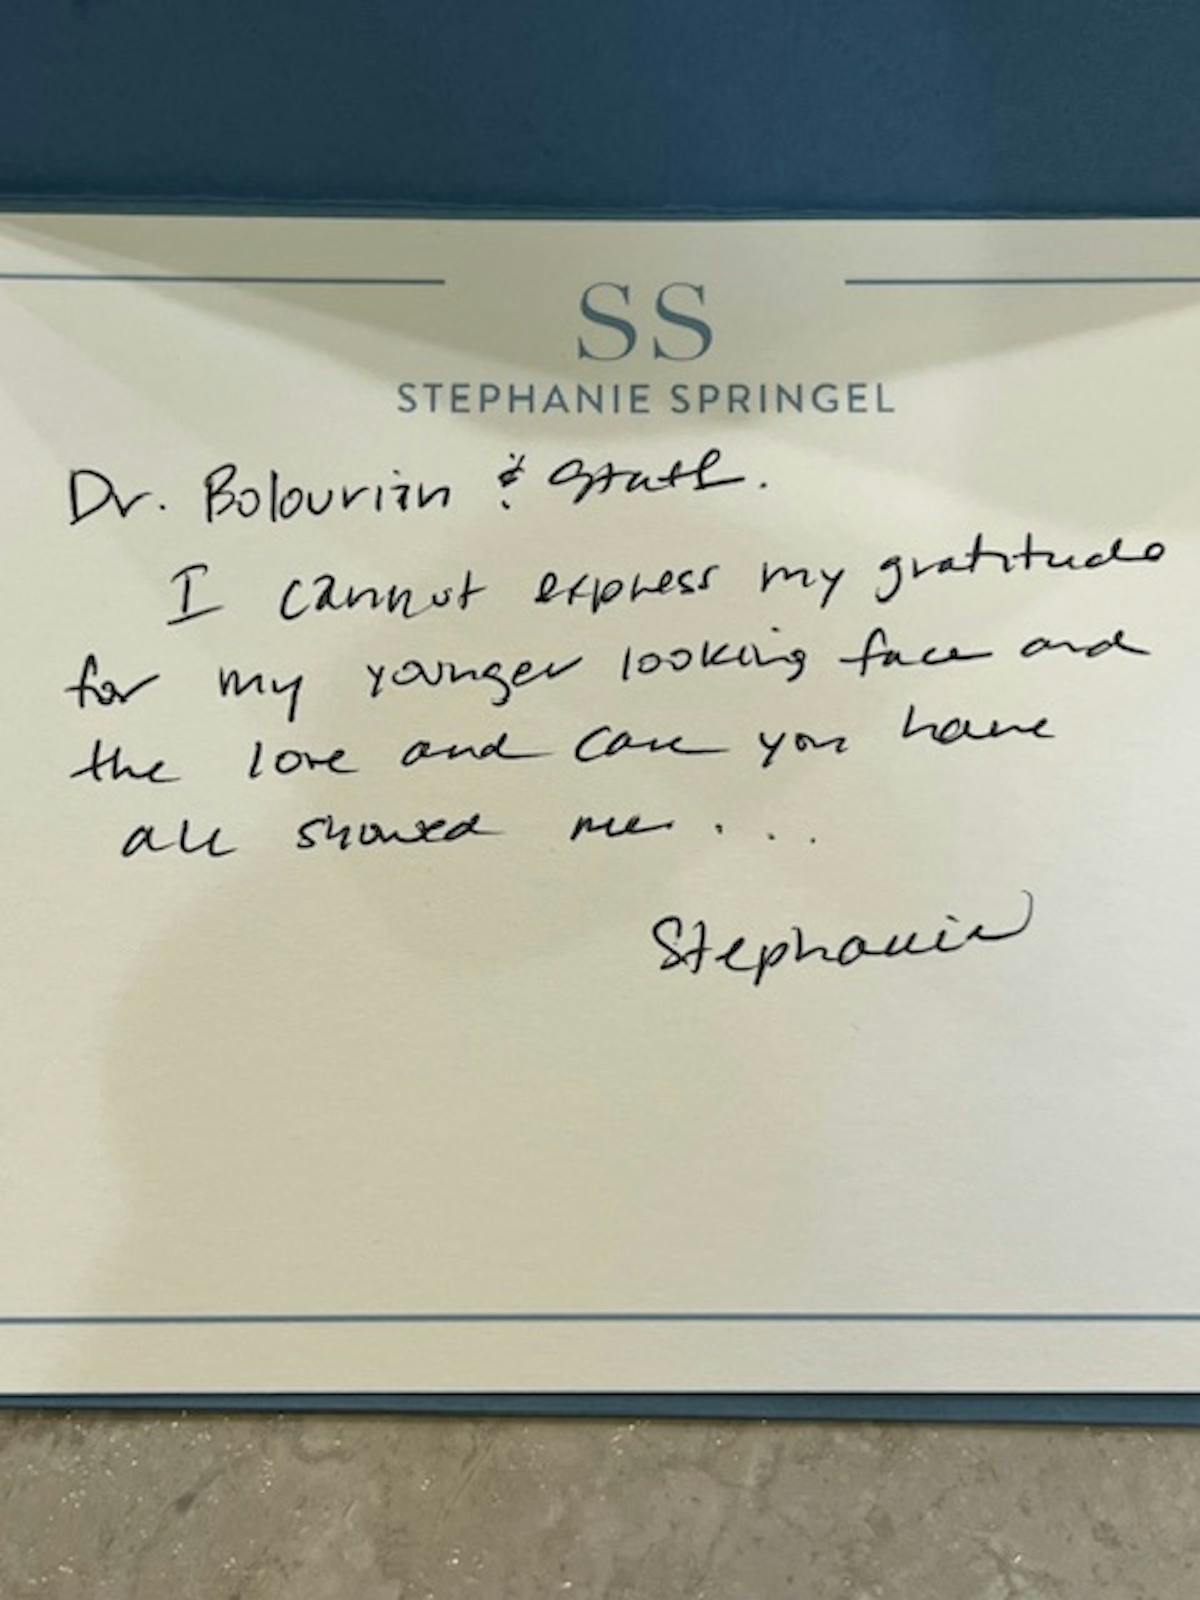 SS
STEPHANIE SPRINGEL
Dr. Bolourian & Staff.
I cannot express my gratitude
for my younger looking face and
the love and care you have
all showed me. . . .
Stephanie